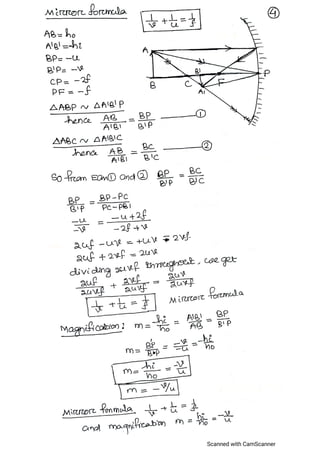 Mirror formula
1/v + 1/u = 1/f
4
AB = ho
A'B' = -hi
BP = -u
B'P = -v
CP = -2f
PF = -f
A
B
C
B'
A'
F
P
△ABP ~ △A'B'P
hence AB/A'B' = BP/B'P — ①
△ABC ~ △A'B'C
hence AB/A'B' = BC/B'C ②
So from Eqn ① and ② BP/B'P = BC/B'C
BP/B'P = BP-PC/PC-PB'
-u/-v = -u+2f/-2f+v
2uf - uv = +uv - 2vf
2uf + 2vf = 2uv
dividing 2uvf throughout, we get
2uf/2uvf + 2vf/2uvf = 2uv/2uvf
1/v + 1/u = 1/f Mirror formula
Magnification: m = hi/ho = A'B'/AB = BP/B'P
m = B'P/BP = -v/-u = -hi/ho
m = hi/ho = -v/u
m = -v/u
Mirror formula 1/v + 1/u = 1/f
and magnification m = hi/ho = -v/u
Scanned with CamScanner